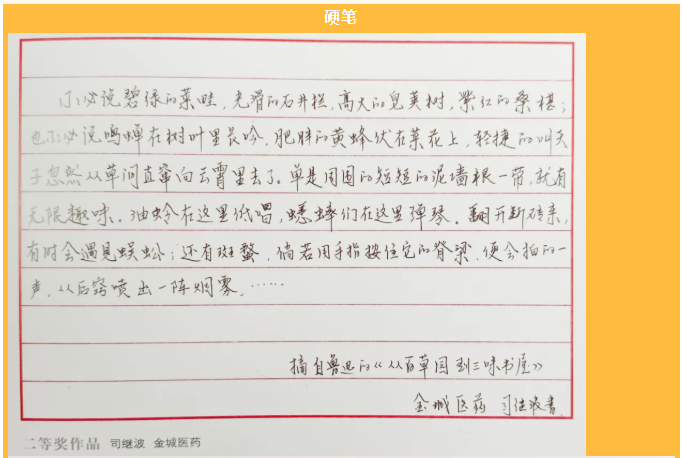 硬笔
不必说碧绿的菜畦，光滑的石井栏，高大的皂荚树，紫红的桑椹；
也不必说鸣蝉在树叶里长吟，肥胖的黄蜂伏在菜花上，轻捷的叫天
子忽然从草间直窜向云霄里去了。单是周围的短短的泥墙根一带，就有
无限趣味。油蛉在这里低唱，蟋蟀们在这里弹琴。翻开断砖来，
有时会遇见蜈蚣；还有斑蝥，倘若用手指按住它的脊梁，便会拍的一
声，从后窍喷出一阵烟雾。……
摘自鲁迅的《从百草园到三味书屋》
金城医药 司继波书
二等奖作品 司继波 金城医药